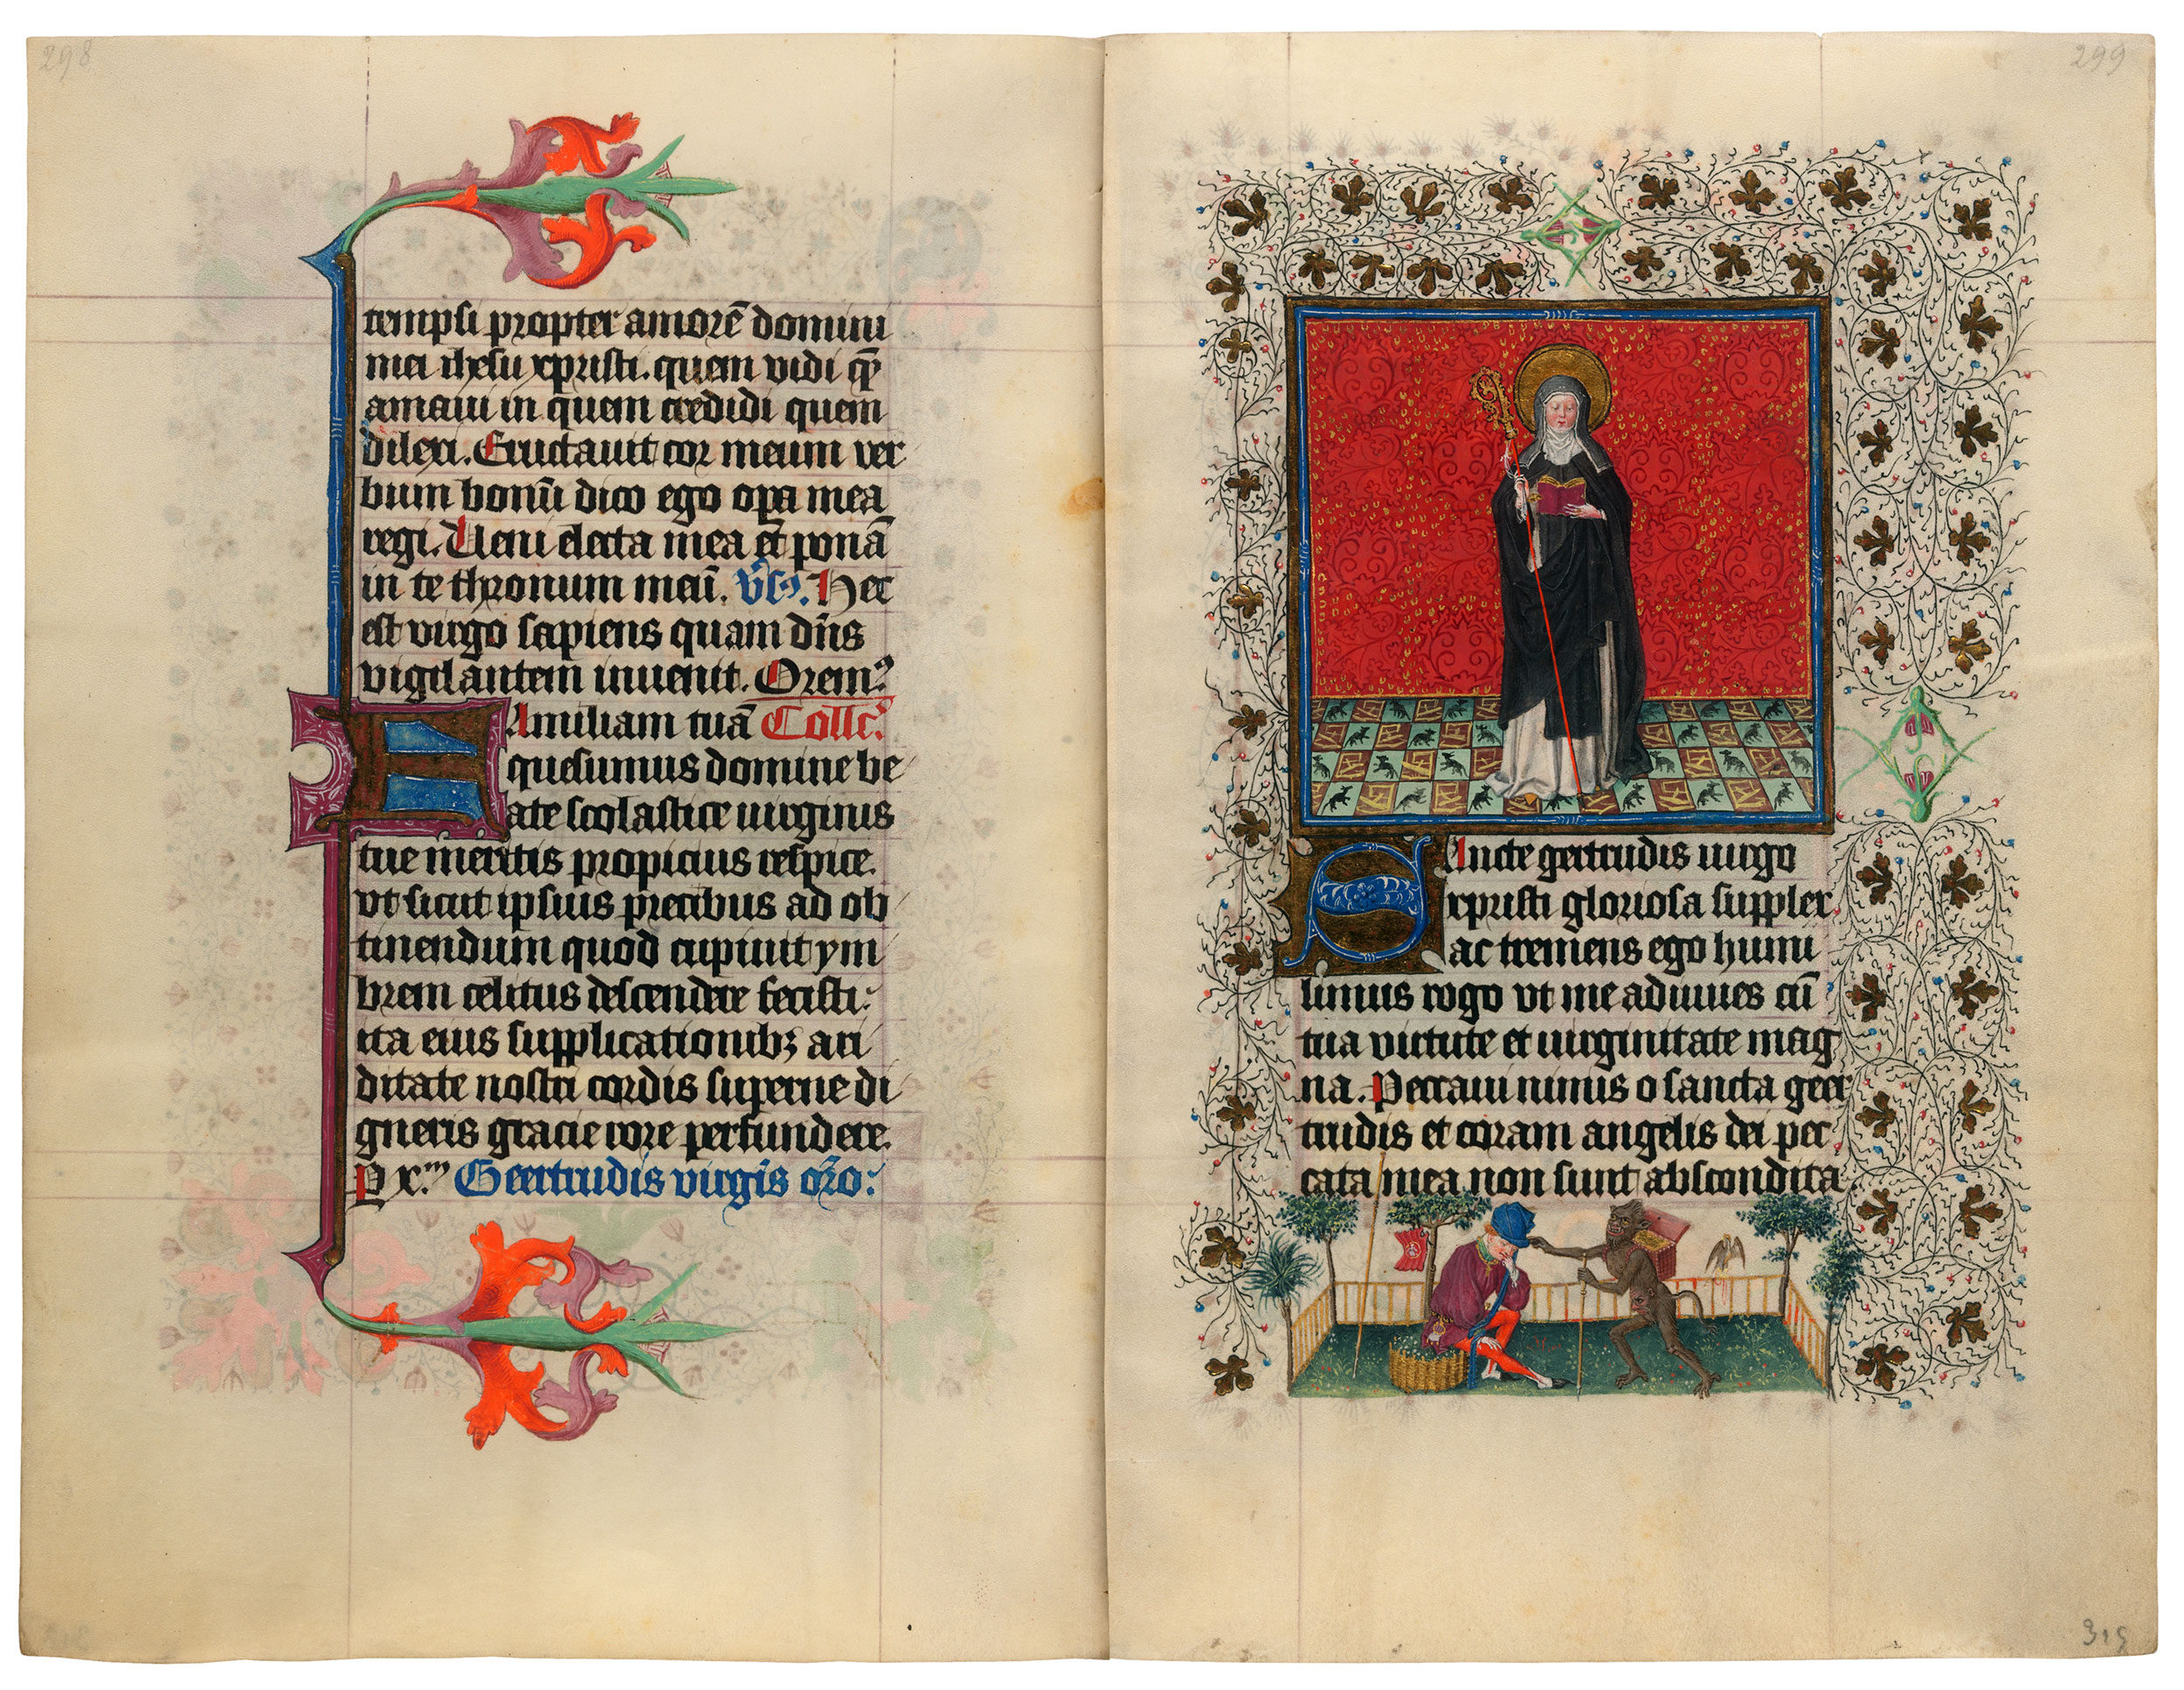 298
tempsi propter amorē domini
mei ihesu xpristi. quem vidi quē
amaui in quem credidi quem
dilexi. Eructauit cor meum ver
bum bonū dico ego opa mea
regi. Ueni electa mea et ponā
in te thronum meū. vs. Hec
est virgo sapiens quam dn̄s
vigilantem inuenit. Orem⁹
FAmiliam tuā Collc̄.
quesumus domine be
ate scolastice uirginis
tue meritis propicius respice.
vt sicut ipsius precibus ad ob
tinendum quod cupiuit ym
brem celitus descendere fecisti:
ita eius supplicationibꝫ ari
ditate nostri cordis superne di
gneris gracie rore perfundere.
P xᵐ Geertrudis virgīs or̄o:
299
SAncte gertrudis uirgo
xpristi gloriosa supplex
ac tremens ego humi
limus rogo vt me adiuues cū
tua virtute et uirginitate mag
na. Peccaui nimis o sancta geer
trudis et coram angelis dei pec
cata mea non sunt abscondita.
315